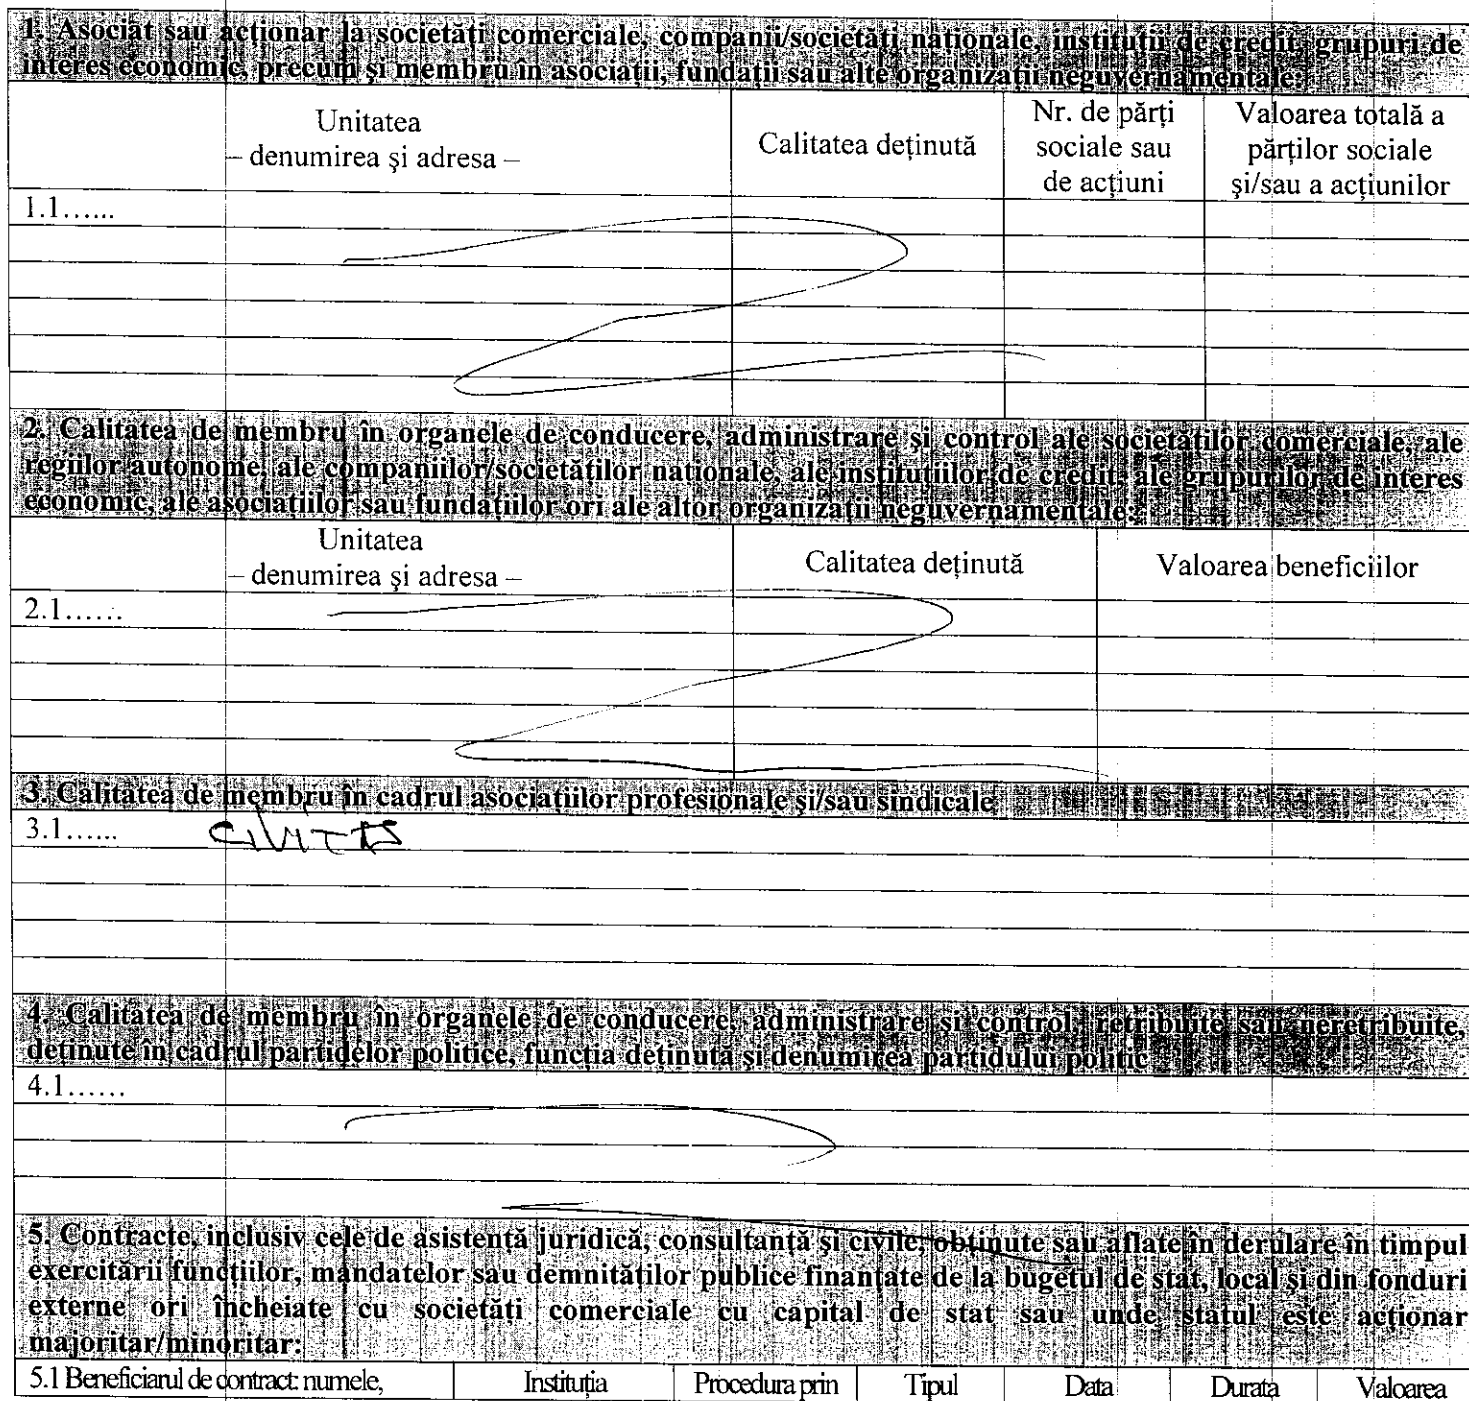 1. Asociat sau acționar la societăți comerciale, companii/societăți naționale, instituții de credit, grupuri de
interes economic, precum și membru în asociații, fundații sau alte organizații neguvernamentale:
Unitatea
– denumirea și adresa –
Calitatea deținută
Nr. de părți
sociale sau
de acțiuni
Valoarea totală a
părților sociale
și/sau a acțiunilor
1.1......
2. Calitatea de membru în organele de conducere, administrare și control ale societăților comerciale, ale
regiilor autonome, ale companiilor/societăților naționale, ale instituțiilor de credit, ale grupurilor de interes
economic, ale asociațiilor sau fundațiilor ori ale altor organizații neguvernamentale:
Unitatea
– denumirea și adresa –
Calitatea deținută
Valoarea beneficiilor
2.1......
3. Calitatea de membru în cadrul asociațiilor profesionale și/sau sindicale
3.1...... CIVITAS
4. Calitatea de membru în organele de conducere, administrare și control, retribuite sau neretribuite,
deținute în cadrul partidelor politice, funcția deținută și denumirea partidului politic
4.1......
5. Contracte, inclusiv cele de asistență juridică, consultanță și civile, obținute sau aflate în derulare în timpul
exercitării funcțiilor, mandatelor sau demnităților publice finanțate de la bugetul de stat, local și din fonduri
externe ori încheiate cu societăți comerciale cu capital de stat sau unde statul este acționar
majoritar/minoritar:
5.1 Beneficiarul de contract: numele, Instituția Procedura prin Tipul Data Durata Valoarea